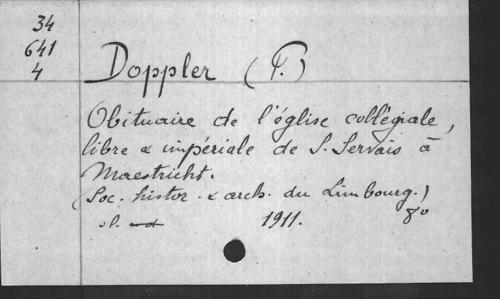 34
641
4
Doppler (P.)
Obituaire de l'église collégiale,
libre & impériale de S. Servais à
Maestricht.
(Soc. histor. & arch. du Limbourg.)
sl. 1911. 8°